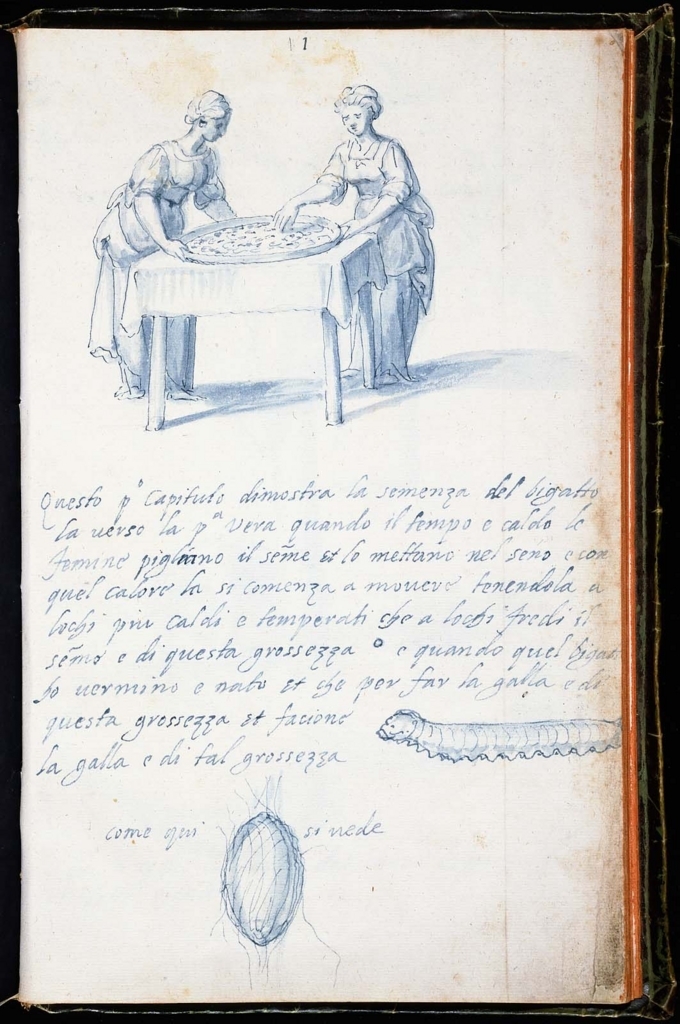 1
Questo pº Capitulo dimostra la semenza del bigatto
la verso la pª Vera quando il tempo e caldo le
femine pigliano il seme et lo mettano nel seno e con
quel calore la si comenza a movere tenendola a
lochi piu caldi e temperati che a lochi fredi il
seme e di questa grossezza o e quando quel bigat
to vermino e nato et che per far la galla e di
questa grossezza et facione
la galla e di tal grossezza
come qui si vede